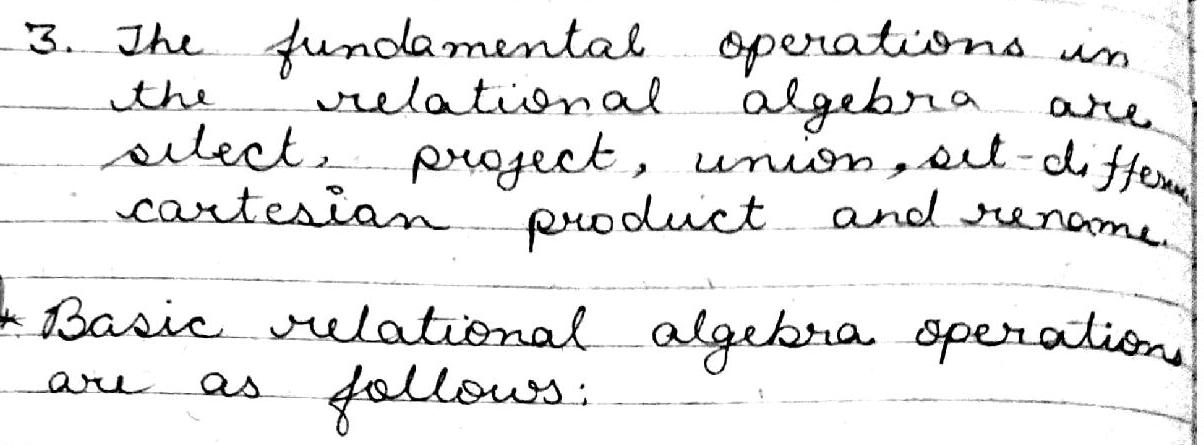 3. The fundamental operations in
the relational algebra are
select, project, union, set-differen
cartesian product and rename.
* Basic relational algebra operations
are as follows: